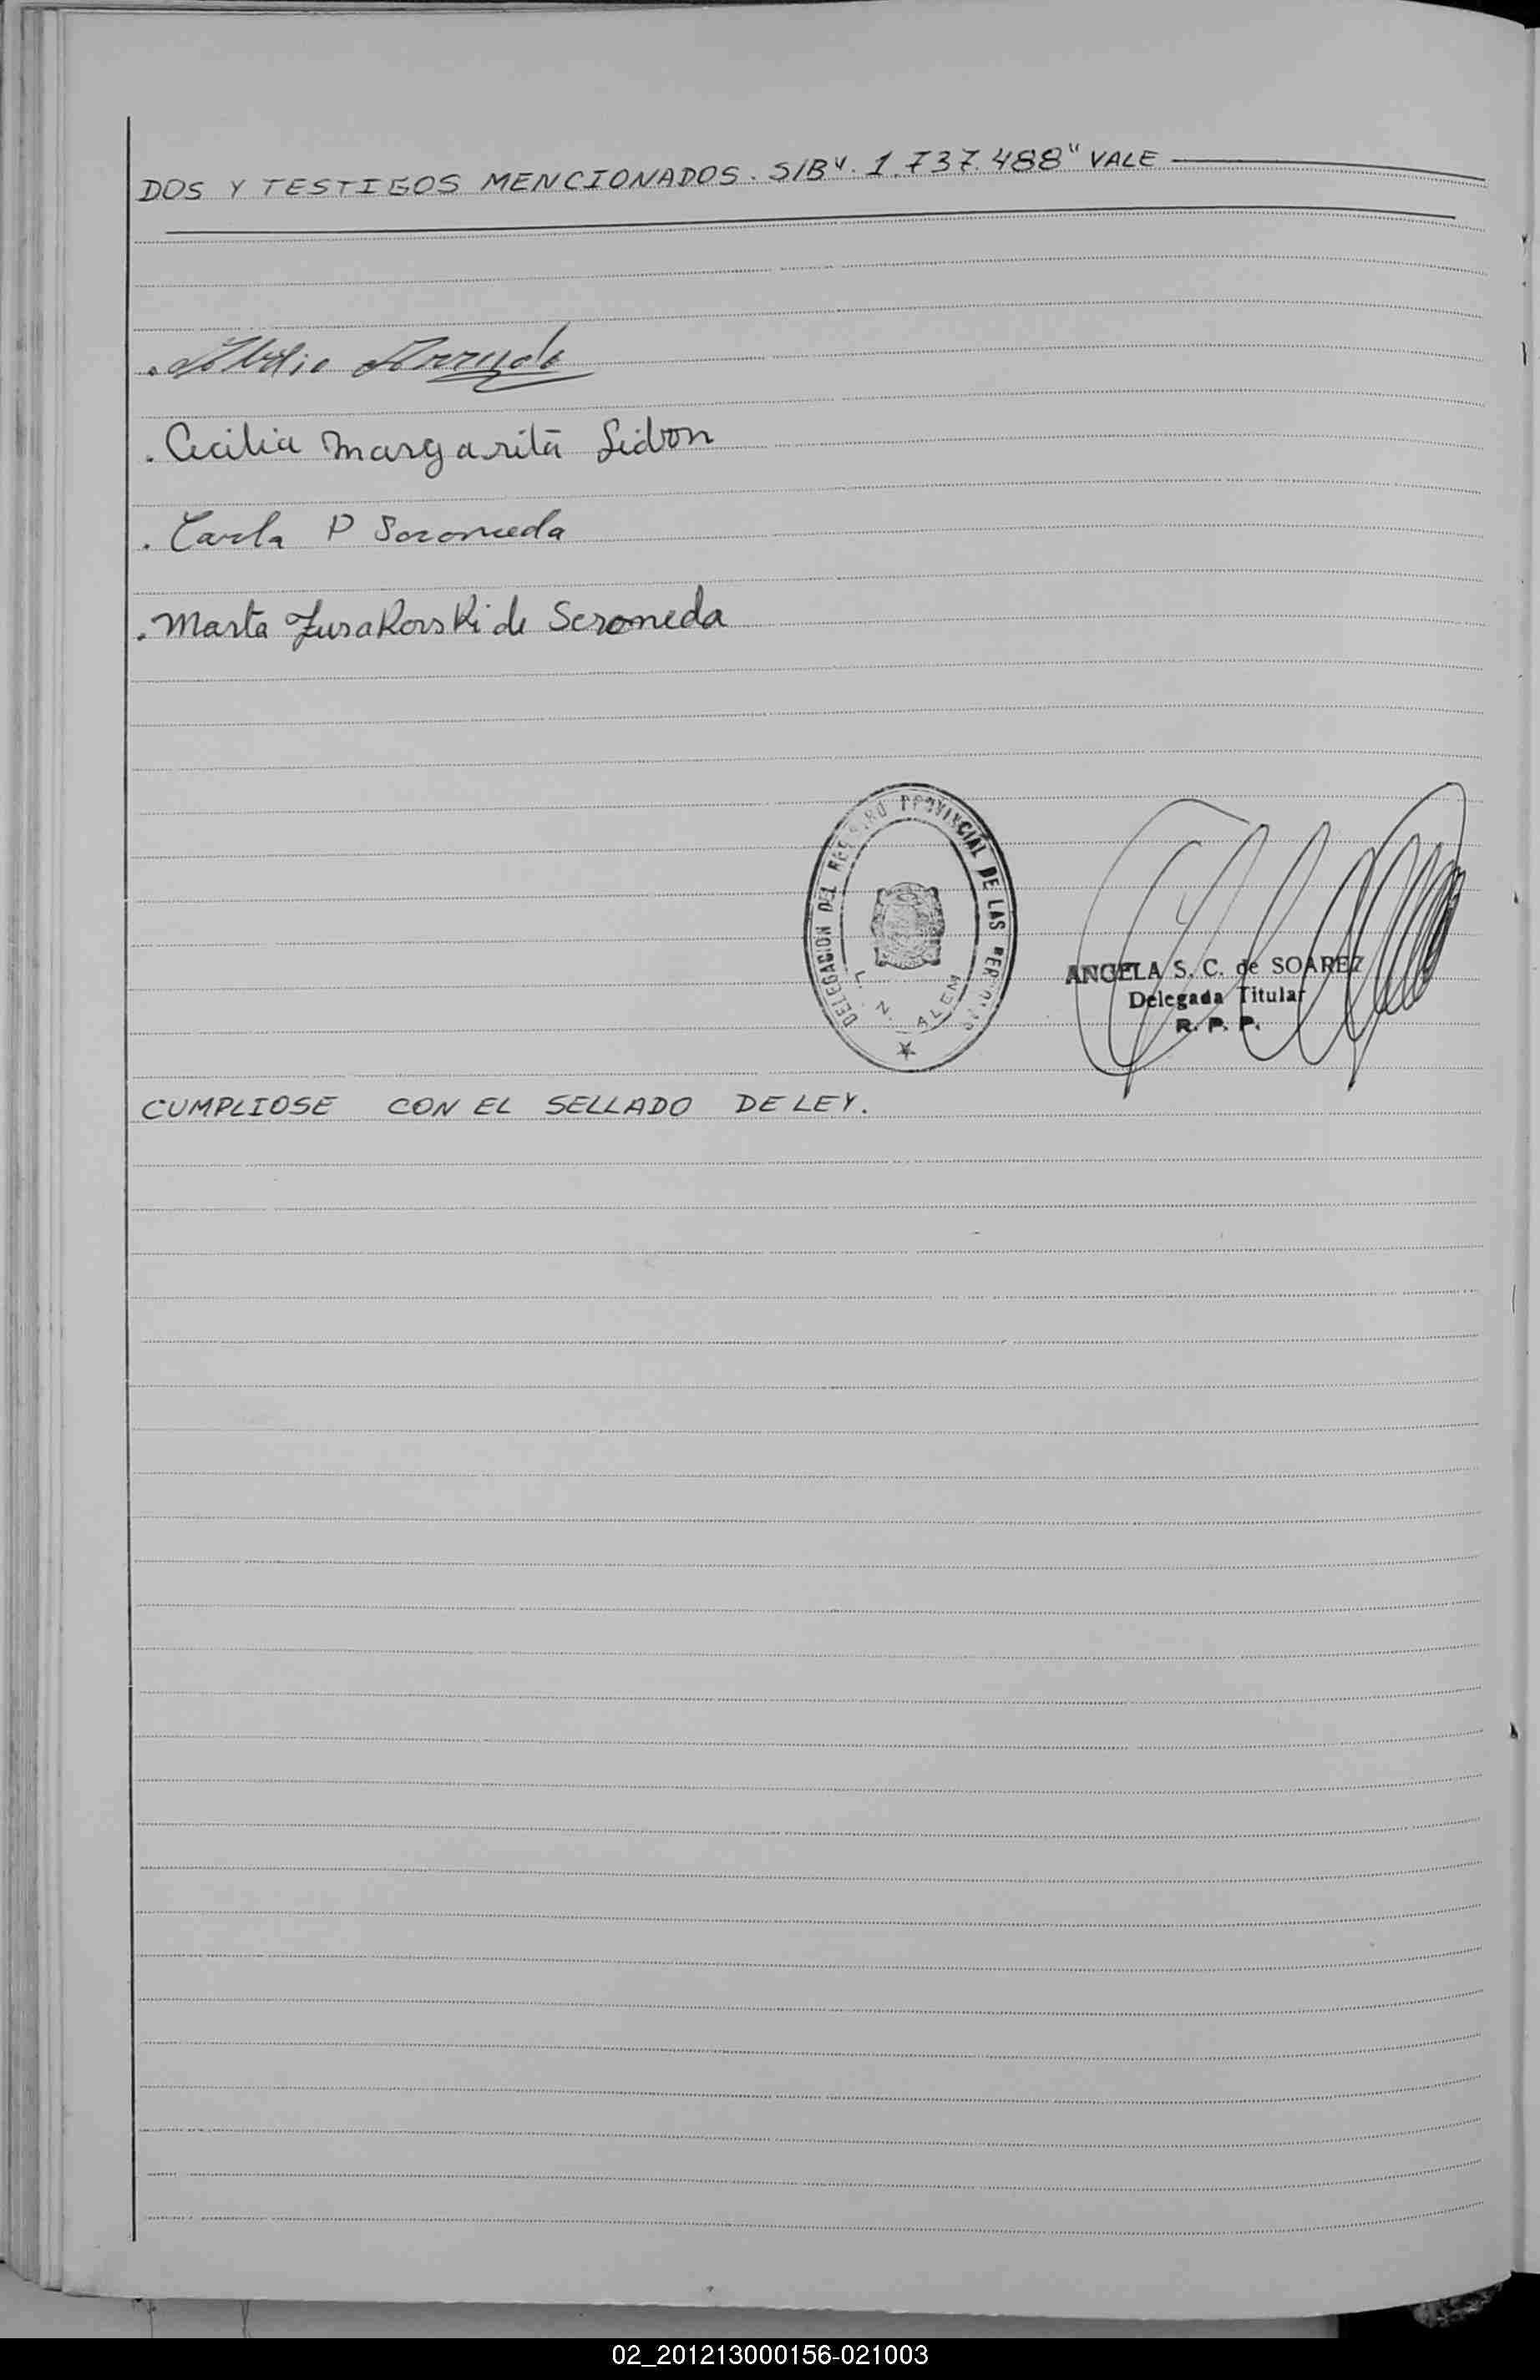 DOS Y TESTIGOS MENCIONADOS. S/B". 1.737.488" VALE
Cecilia Margarita Lidon
Carla P Soromeda
Marta Zurakovski de Seromeda
DELEGACION DEL REGISTRO PROVINCIAL DE LAS PERSONAS
L. N. ALEM
ANGELA S. C. de SOAREZ
Delegada Titular
R. P. P.
CUMPLIOSE CON EL SELLADO DE LEY.
02_201213000156-021003